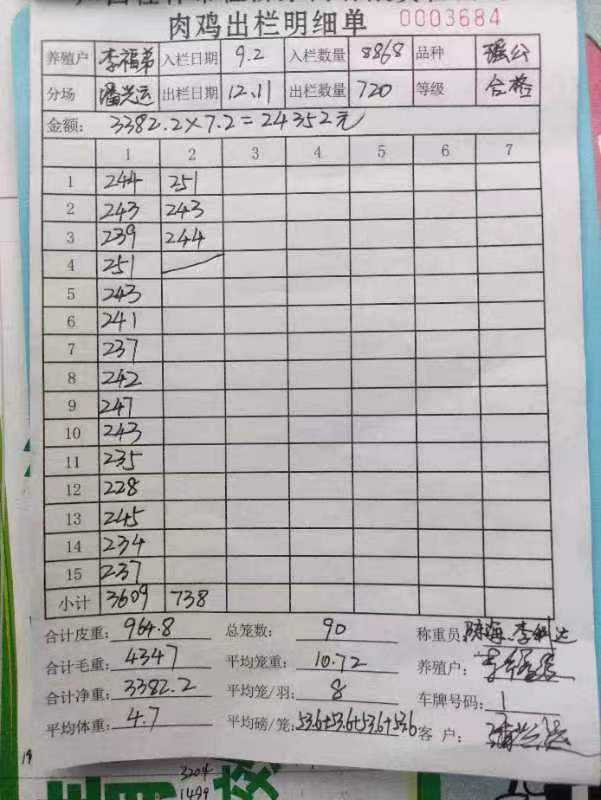 肉鸡出栏明细单 0003684
养殖户 李福弟 入栏日期 9.2 入栏数量 8868 品种 瑶公
分场 潘兴运 出栏日期 12.11 出栏数量 720 等级 合格
金额: 3382.2×7.2=24352元
1 2 3 4 5 6 7
1 244 251
2 243 243
3 239 244
4 251
5 243
6 241
7 237
8 242
9 247
10 243
11 235
12 228
13 245
14 234
15 237
小计 3609 738
合计皮重: 964.8 总笼数: 90 称重员: 陈海 李
合计毛重: 4347 平均笼重: 10.72 养殖户:
合计净重: 3382.2 平均笼/羽: 8 车牌号码: 1
平均体重: 4.7 平均磅/笼: 53.6+53.6+53.6+53.6 客户: 潘兴运
19
3204
1499